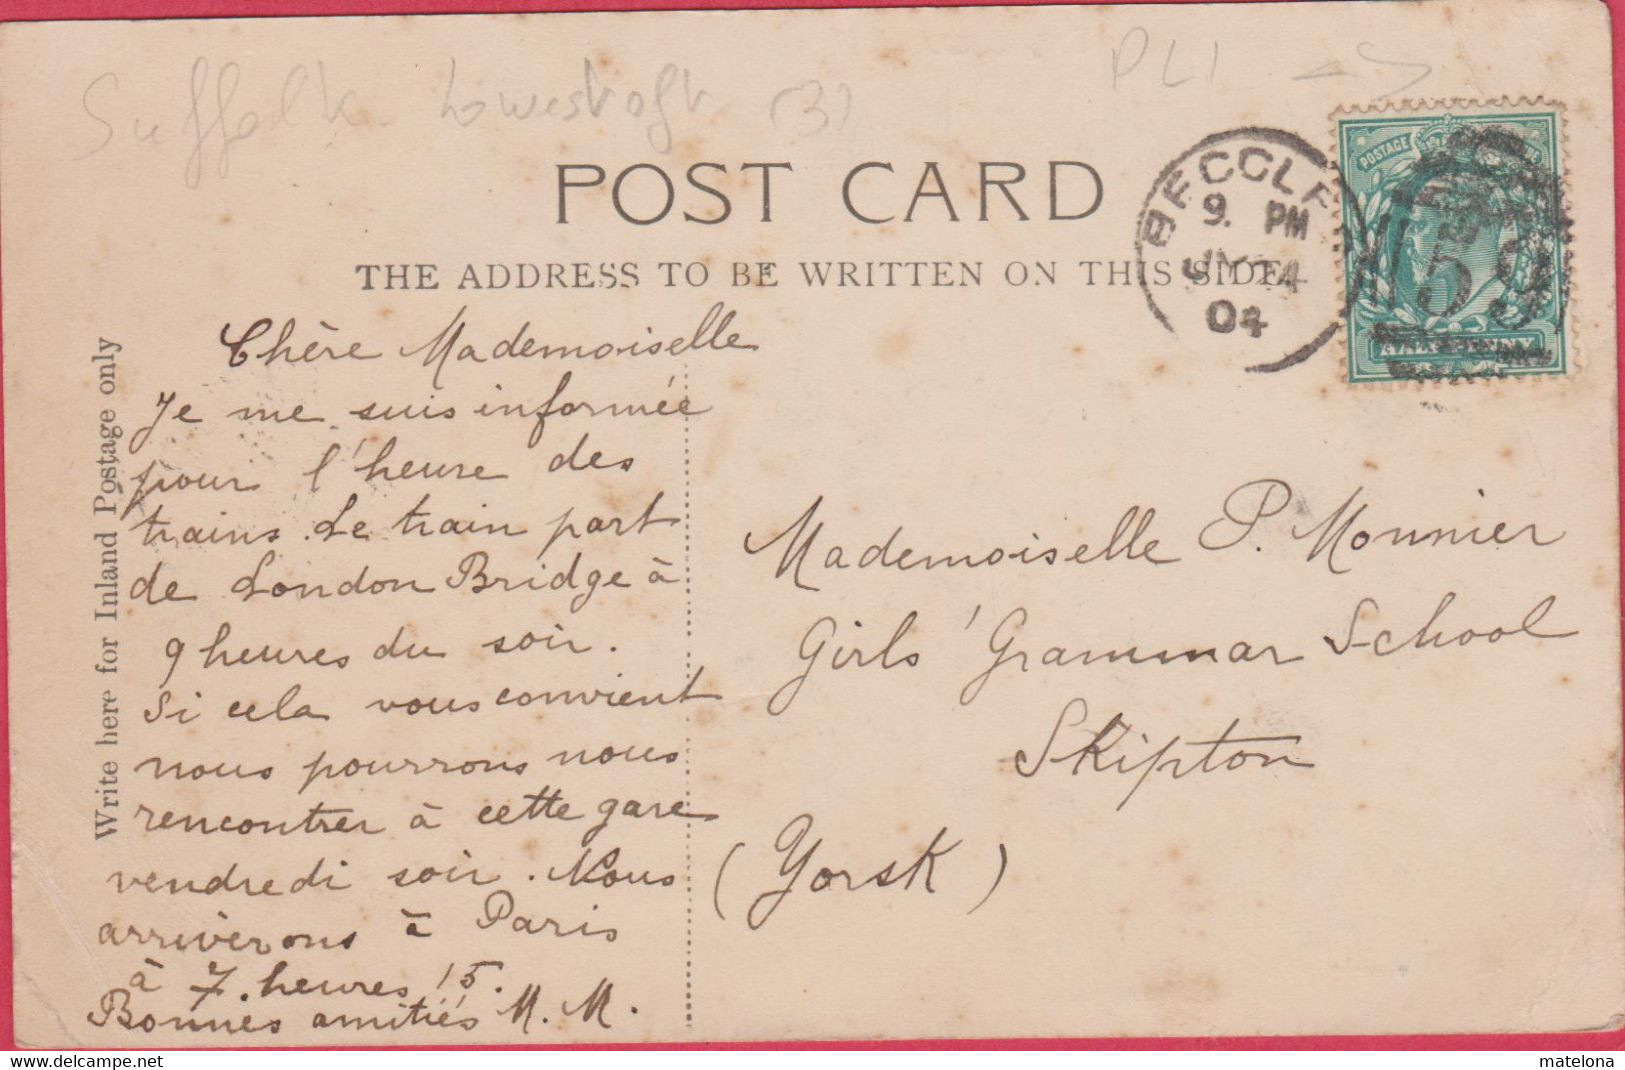 Suffolk Lowestoft (3)
PLI
POST CARD
THE ADDRESS TO BE WRITTEN ON THIS SIDE
BECCLE
9. PM
JY 4
04
POSTAGE
59
HALFPENNY
Write here for Inland Postage only
Chère Mademoiselle
Je me suis informée
pour l'heure des
trains. Le train part
de London Bridge à
9 heures du soir.
Si cela vous convient
nous pourrons nous
rencontrer à cette gare
vendredi soir. Nous
arriverons à Paris
à 7. heures 15.
Bonnes amitiés M. M.
Mademoiselle P. Monnier
Girls' Grammar School
Skipton
(Yorsk)
delcampe.net
matelona